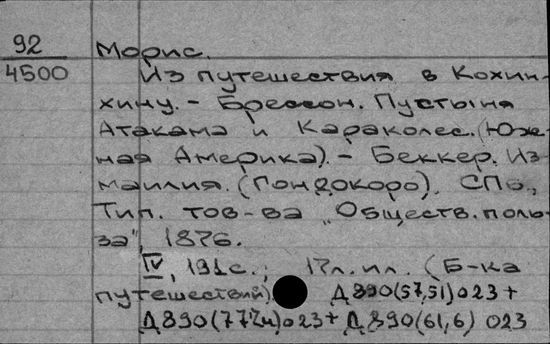 92
4500
Морис.
Из путешествия в Кохин-
хину. – Брессон. Пустыня
Атакама и Караколес. (Юж-
ная Америка). – Беккер. Из-
маилия. (Гондокоро). СПб.,
Тип. тов-ва „Обществ. поль-
за", 1876.
IV, 191 с.; 17 л. ил. (Б-ка
путешествий). Д890(57,51)023+
Д890(77Чи)023+Д890(61,6) 023